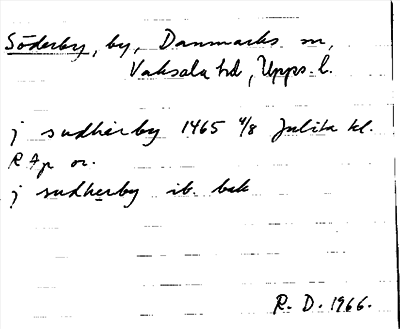 Söderby, by, Danmarks sn,
Vaksala hd, Upps. l.
j sudherby 1465 4/8 Julita kl.
RAp or.
j sudherby ib. bak
R. D. 1966.